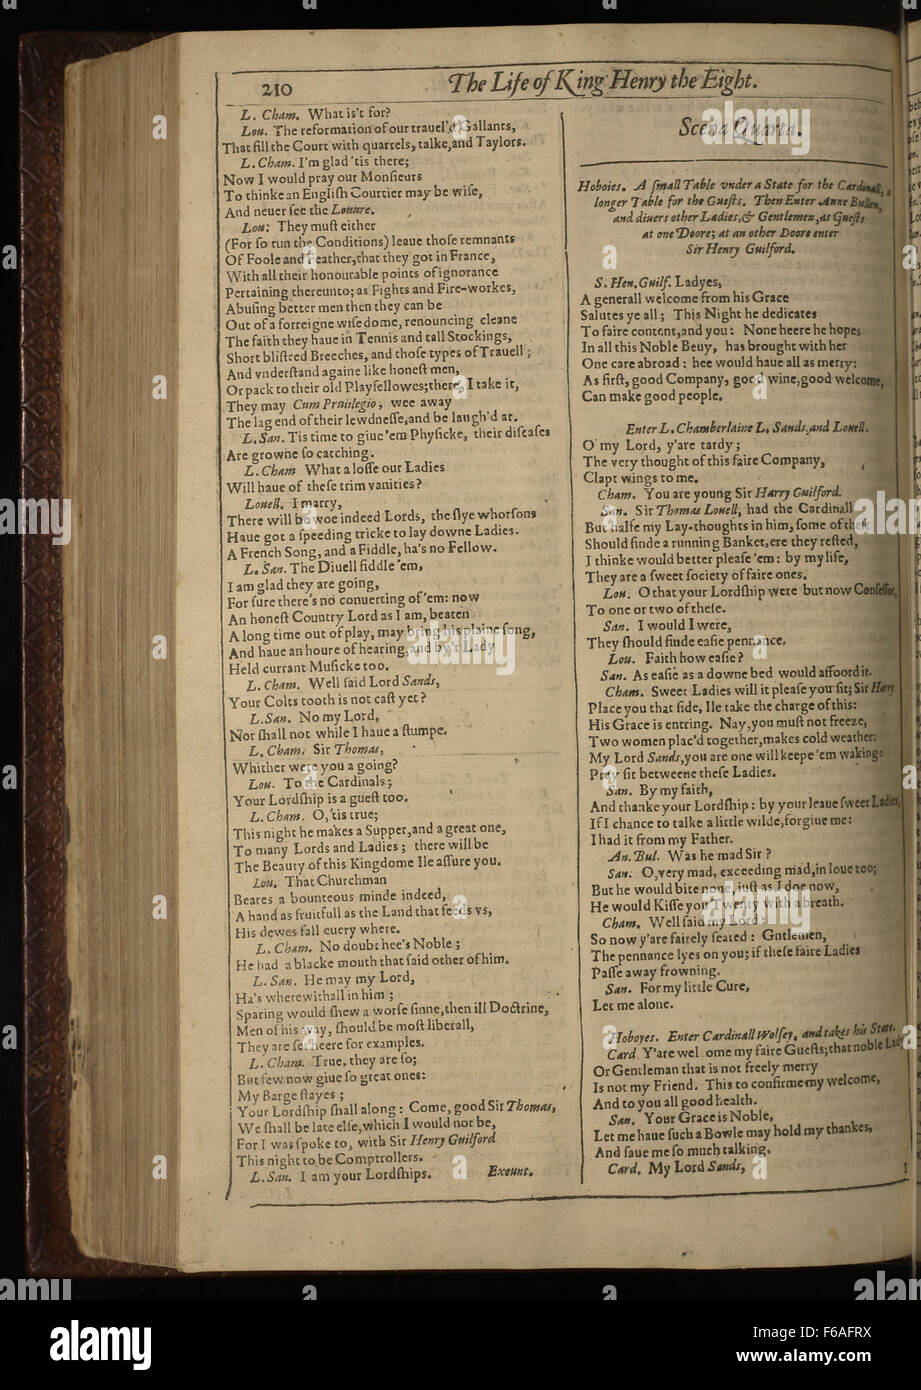 210
The Life of King Henry the Eight.
L. Cham. What is't for?
Lou. The reformation of our trauel'd Gallants,
That fill the Court with quarrels, talke,and Taylors.
L.Cham. I'm glad 'tis there;
Now I would pray our Monſieurs
To thinke an Engliſh Courtier may be wiſe,
And neuer ſee the Louure.
Lou: They muſt either
(For ſo run the Conditions) leaue thoſe remnants
Of Foole and Feather,that they got in France,
With all their honourable points of ignorance
Pertaining thereunto; as Fights and Fire-workes,
Abuſing better men then they can be
Out of a forreigne wiſedome, renouncing cleane
The faith they haue in Tennis and tall Stockings,
Short bliſtred Breeches, and thoſe types of Trauell;
And vnderſtand againe like honeſt men,
Or pack to their old Playfellowes;there, I take it,
They may Cum Priuilegio, wee away
The lag end of their lewdneſſe,and be laugh'd at.
L.San. Tis time to giue 'em Phyſicke, their diſeaſes
Are growne ſo catching.
L.Cham What a loſſe our Ladies
Will haue of theſe trim vanities?
Louell. I marry,
There will be woe indeed Lords, the ſlye whorſons
Haue got a ſpeeding tricke to lay downe Ladies.
A French Song, and a Fiddle, ha's no Fellow.
L.San. The Diuell fiddle 'em,
I am glad they are going,
For ſure there's no conuerting of 'em: now
An honeſt Country Lord as I am, beaten
A long time out of play, may bring his plaine ſong,
And haue an houre of hearing,and by'r Lady
Held currant Muſicke too.
L.Cham. Well ſaid Lord Sands,
Your Colts tooth is not caſt yet?
L.San. No my Lord,
Nor ſhall not while I haue a ſtumpe.
L.Cham. Sir Thomas,
Whither were you a going?
Lou. To the Cardinals;
Your Lordſhip is a gueſt too.
L.Cham. O,'tis true;
This night he makes a Supper,and a great one,
To many Lords and Ladies; there will be
The Beauty of this Kingdome Ile aſſure you.
Lou. That Churchman
Beares a bounteous minde indeed,
A hand as fruitfull as the Land that feeds vs,
His dewes fall euery where.
L.Cham. No doubt hee's Noble;
He had a blacke mouth that ſaid other of him.
L.San. He may my Lord,
Ha's wherewithall in him;
Sparing would ſhew a worſe ſinne,then ill Doctrine,
Men of his way, ſhould be moſt liberall,
They are ſet heere for examples.
L.Cham. True, they are ſo;
But few now giue ſo great ones:
My Barge ſtayes;
Your Lordſhip ſhall along: Come, good Sir Thomas,
We ſhall be late elſe,which I would not be,
For I was ſpoke to, with Sir Henry Guilford
This night to be Comptrollers.
L.San. I am your Lordſhips. Exeunt.
Scena Quarta.
Hoboies. A ſmall Table vnder a State for the Cardinall, a
longer Table for the Gueſts. Then Enter Anne Bullen,
and diuers other Ladies,& Gentlemen,as Gueſts
at one Doore; at an other Doore enter
Sir Henry Guilford.
S. Hen.Guilf. Ladyes,
A generall welcome from his Grace
Salutes ye all; This Night he dedicates
To faire content,and you: None heere he hopes
In all this Noble Beuy, has brought with her
One care abroad: hee would haue all as merry:
As firſt, good Company, good wine,good welcome,
Can make good people.
Enter L. Chamberlaine L. Sands,and Louell.
O my Lord, y'are tardy;
The very thought of this faire Company,
Clapt wings to me.
Cham. You are young Sir Harry Guilford.
San. Sir Thomas Louell, had the Cardinall
But halfe my Lay-thoughts in him, ſome of theſe
Should finde a running Banket,ere they reſted,
I thinke would better pleaſe 'em: by my life,
They are a ſweet ſociety of faire ones.
Lou. O that your Lordſhip were but now Confeſſor,
To one or two of theſe.
San. I would I were,
They ſhould finde eaſie pennance.
Lou. Faith how eaſie?
San. As eaſie as a downe bed would affoord it.
Cham. Sweet Ladies will it pleaſe you ſit; Sir Harry
Place you that ſide, Ile take the charge of this:
His Grace is entring. Nay,you muſt not freeze,
Two women plac'd together,makes cold weather:
My Lord Sands,you are one will keepe 'em waking:
Pray ſit betweene theſe Ladies.
San. By my faith,
And thanke your Lordſhip: by your leaue ſweet Ladies,
If I chance to talke a little wilde,forgiue me:
I had it from my Father.
An.Bul. Was he mad Sir?
San. O,very mad, exceeding mad,in loue too;
But he would bite none, iuſt as I doe now,
He would Kiſſe you Twenty with a breath.
Cham. Well ſaid my Lord:
So now y'are fairely ſeated: Gntlemen,
The pennance lyes on you; if theſe faire Ladies
Paſſe away frowning.
San. For my little Cure,
Let me alone.
Hoboyes. Enter Cardinall Wolſey, and takes his State.
Card Y'are wel ome my faire Gueſts;that noble Lady
Or Gentleman that is not freely merry
Is not my Friend. This to confirme my welcome,
And to you all good health.
San. Your Grace is Noble,
Let me haue ſuch a Bowle may hold my thankes,
And ſaue me ſo much talking.
Card. My Lord Sands,
I
alamy
a
Image ID: F6AFRX
www.alamy.com